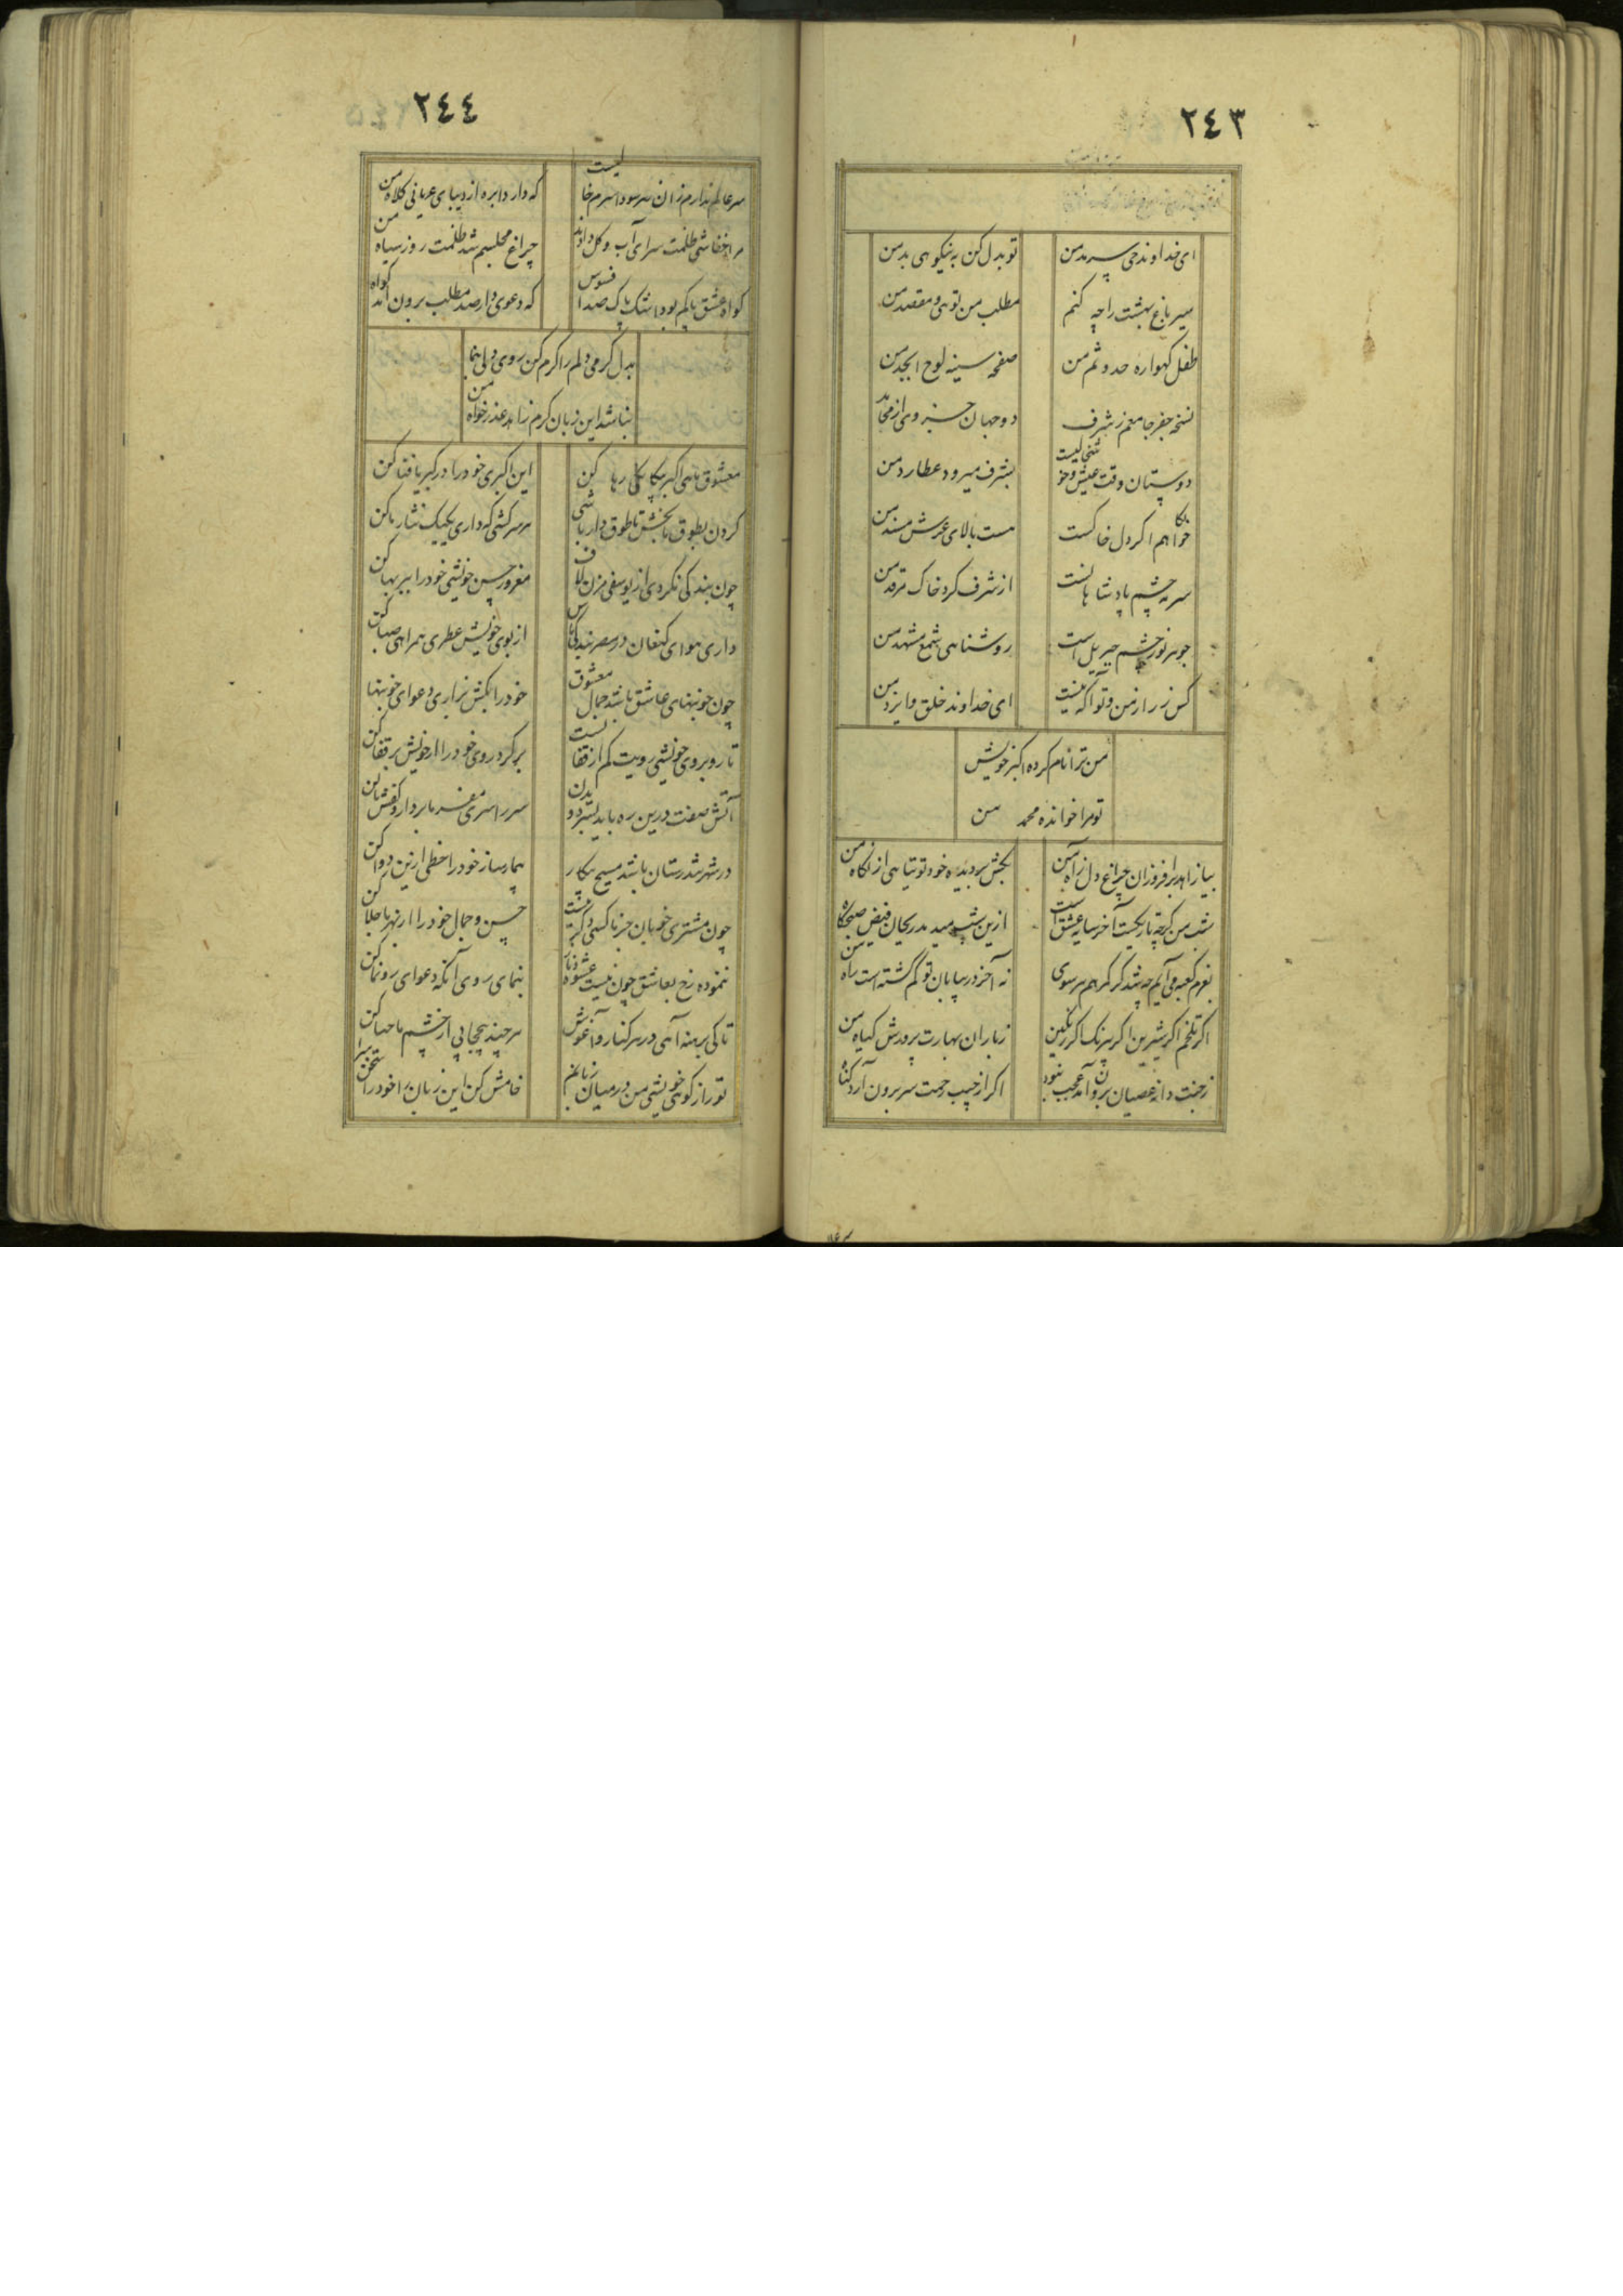 ٢٤٣
ای خداوند حی سرمد من
تو بدل کن به نیکوهی بد من
سیر باغ بهشت را چه کنم
مطلب من توهی و مقصد من
طفل کهواره حدوثم من
صفحه سینه لوح ابجد من
نسخه جفر جامعم ز شرف
دو جهان جزوی از مجلد من
دوستان وقت عیش و خوشی نیست
بشرف میرود عطارد من
خواهم اکر دل خاکست
هست بالای عرش مسند من
سرمه چشم پادشاهانست
از شرف کرد خاک مرقد من
جوهر نور چشم جبریل است
روشناهی شمع مشهد من
کس ز راز من و تو آکه نیست
ای خداوند خلق و ایزد من
من ترا نام کرده اکبر خویش
تو مرا خوانده محمد من
بیا زاهد برافروزان چراغ دل ز آه من
بکش بر دیده خود توتیاهی از نکاه من
شب من کرچه تاریکست آخر سایه عشق است
ازین شب میدمد ریحان فیض صبحکاه من
بعزم کعبه می آیم چه شد کر کمرهم هر سوی
نه آخر در بیابان تو کم کشته است راه من
اکر تلخم اکر شیرین اکر بیرنک اکر رنکین
ز باران بهارت پرورش کیاه من
ز جنت دانه عصیان برون آمد عجب نبود
اکر از جیب رحمت سر برون آرد کناه من
٢٤٤
سر عالم ندارم زان سر سودا سرم خالیست
که دارد ابره از دیبای عریانی کلاه من
مرا خفاشی ظلمت سرای آب و کل دادند
چراغ مجلسم شد ظلمت روز سیاه من
کواه عشق پاکم بود اشک پاک صد افسوس
که دعوی دار صد مطلب برون آمد کواه
بدل کرمی دلم را کرم کن روی دلی بنما
نباشد این زبان کرم زاهد عذرخواه من
معشوق ماهی اکبر بیکانکی رها کن
این اکبری خود را در کبریا فنا کن
کردن بطوق ما بخش تا طوق دار باشی
هر سرکشی که داری یکیک نثار ما کن
چون بندکی نکردی از یوسفی مزن لاف
مغرور حسن خویشی خود را ببر بها کن
داری هوای کنعان در مصر بندکی باش
از بوی خویش عطری همراهی صبا کن
چون خونبهای عاشق باشد جمال معشوق
خود را بکش بزاری دعوای خونبها
تا روبروی خویشی رویت کم از قفا نیست
برکرد روی خود را از خویش بر قفا کن
آتش صفت درین ره باید بسر دویدن
سر را سری مفرما بردار و کفش پا کن
در شهر تندرستان باشد مسیح بیکار
بیمار ساز خود را حظی ازین دوا کن
چون مشتری خوبان جز ما کسی دکر نیست
حسن و جمال خود را از بهر ما جلا کن
ننموده رخ بعاشق چون نیست عشوه دنار
بنمای روی آنکه دعوای رونما کن
تا کی برهنه آهی در هر کنار و آغوش
هر چند بیحجابی از چشم ما حیا کن
تو راز کوهی خویشی من در میان زبانم
خامش کن این زبان را خود را سخن سرا